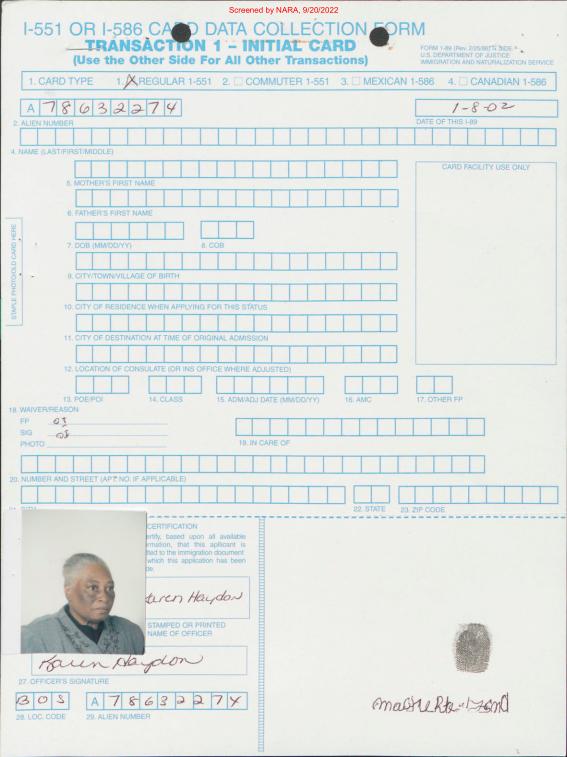 Screened by NARA, 9/20/2022
I-551 OR I-586 CARD DATA COLLECTION FORM
TRANSACTION 1 – INITIAL CARD
(Use the Other Side For All Other Transactions)
FORM I-89 SIDE
U.S. DEPARTMENT OF JUSTICE
IMMIGRATION AND NATURALIZATION SERVICE
1. CARD TYPE 1. X REGULAR 1-551 2. COMMUTER 1-551 3. MEXICAN 1-586 4. CANADIAN 1-586
A 78632274 1-8-02
2. ALIEN NUMBER DATE OF THIS I-89
4. NAME (LAST/FIRST/MIDDLE)
CARD FACILITY USE ONLY
5. MOTHER'S FIRST NAME
6. FATHER'S FIRST NAME
7. DOB (MM/DD/YY) 8. COB
STAPLE PHOTO/OLD CARD HERE
9. CITY/TOWN/VILLAGE OF BIRTH
10. CITY OF RESIDENCE WHEN APPLYING FOR THIS STATUS
11. CITY OF DESTINATION AT TIME OF ORIGINAL ADMISSION
12. LOCATION OF CONSULATE (OR INS OFFICE WHERE ADJUSTED)
13. POE/POI 14. CLASS 15. ADM/ADJ DATE (MM/DD/YY) 16. AMC 17. OTHER FP
18. WAIVER/REASON
FP
SIG
PHOTO
19. IN CARE OF
20. NUMBER AND STREET (APT NO. IF APPLICABLE)
22. STATE 23. ZIP CODE
CERTIFICATION
ertify, based upon all available
ormation, that this applicant is
tted to the immigration document
which this application has been
de.
Karen Haydon
STAMPED OR PRINTED
NAME OF OFFICER
Karen Haydon
27. OFFICER'S SIGNATURE
BOS A 78632274
28. LOC. CODE 29. ALIEN NUMBER